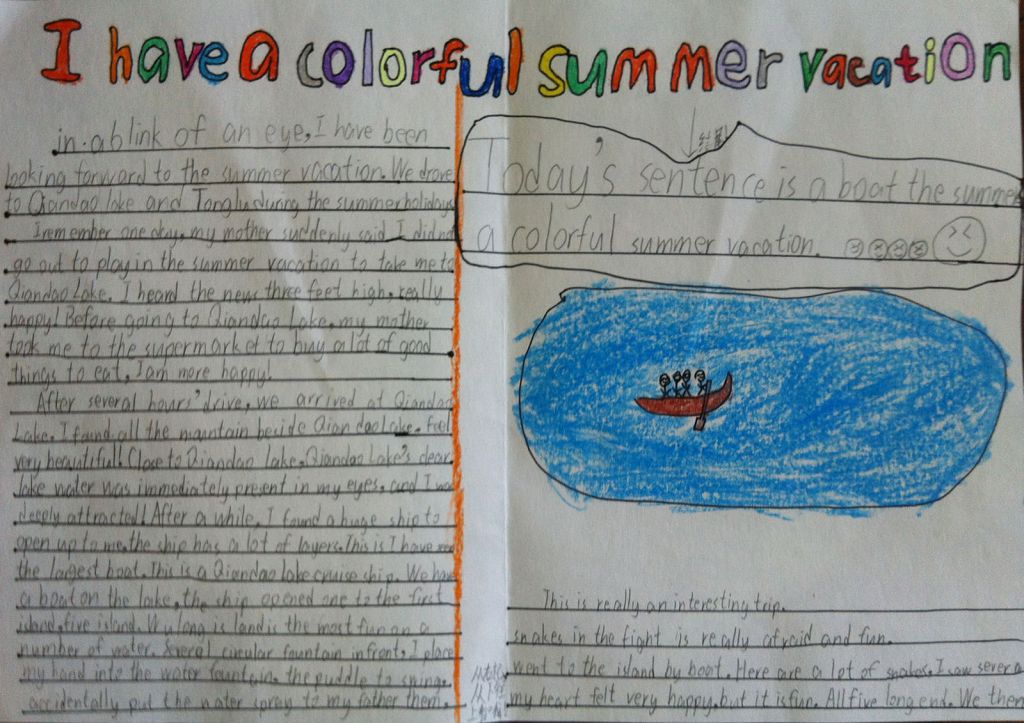 I have a colorful summer vacation
in a blink of an eye, I have been
looking forward to the summer vacation. We drove
to Qiandao lake and Tonglu during the summer holidays
I remember one day, my mother suddenly said I didn't
go out to play in the summer vacation to take me to
Qiandao Lake. I heard the news three feet high, really
happy! Before going to Qiandao Lake, my mother
took me to the supermarket to buy a lot of good
things to eat, I am more happy!
After several hours' drive, we arrived at Qiandao
Lake. I found all the mountain beside Qiandao Lake. feel
very beautiful! Close to Qiandao lake, Qiandao Lake's clear
lake water was immediately present in my eyes, and I was
deeply attracted! After a while, I found a huge ship to
open up to me. the ship has a lot of layers. This is I have
the largest boat. This is a Qiandao lake cruise ship. We have
a boat on the lake, the ship opened one to the first
island, five island. long island is the most fun on a
number of water. Several circular fountain in front, I place
my hand into the water fountain, the puddle to
accidentally put the water spray to my father them.
Today's sentence is a boat the summer
a colorful summer vacation.
This is really an interesting trip.
snakes in the fight is really afraid and fun.
went to the island by boat. Here are a lot of snakes. I saw severa
my heart felt very happy, but it is fun. All five long end. We then